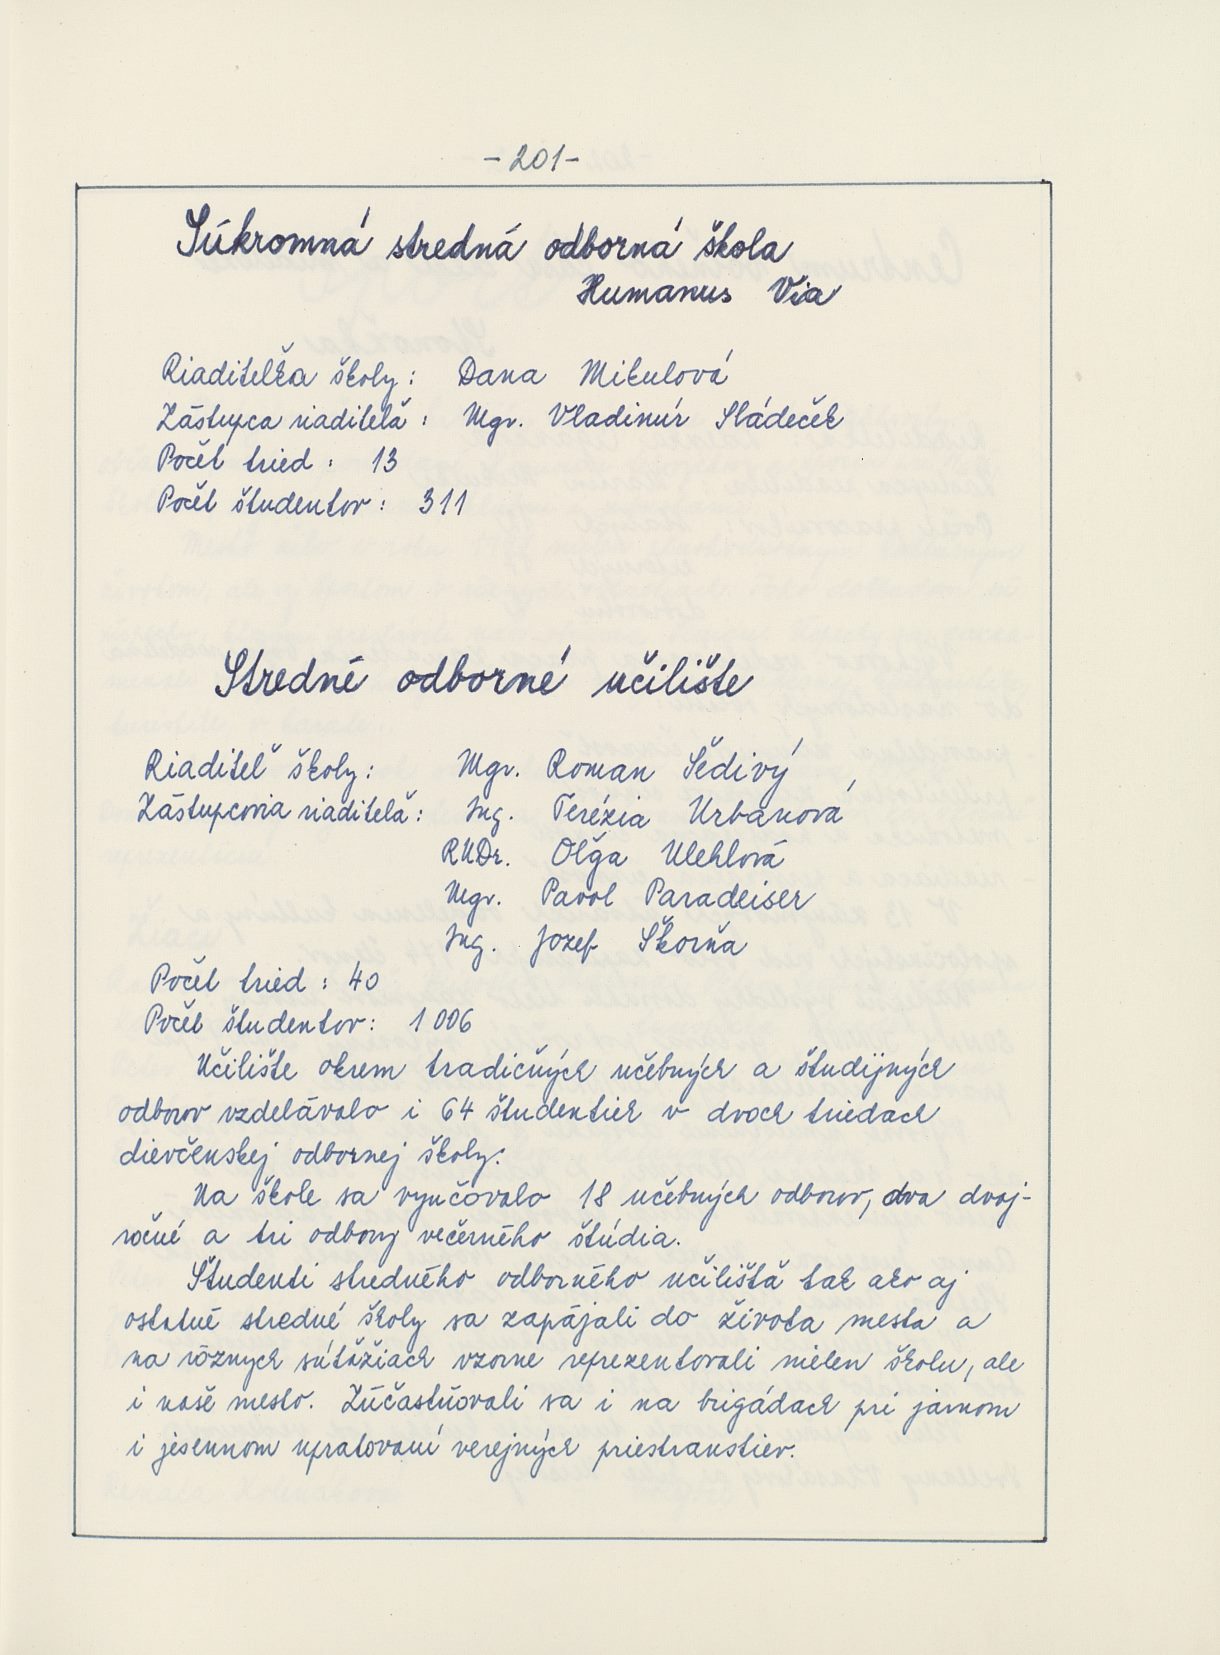 -201-
Súkromná stredná odborná škola
Humanus Via
Riaditeľka školy: Dana Mikulová
Zástupca riaditeľa: Mgr. Vladimír Sládeček
Počet tried: 13
Počet študentov: 311
Stredné odborné učilište
Riaditeľ školy: Mgr. Roman Šedivý
Zástupcovia riaditeľa: Ing. Terézia Urbanová
RNDr. Oľga Ulehlová
Mgr. Pavol Paradeiser
Ing. Jozef Škorňa
Počet tried: 40
Počet študentov: 1 006
Učilište okrem tradičných učebných a študijných
odborov vzdelávalo i 64 študentiek v dvoch triedach
dievčenskej odbornej školy.
Na škole sa vyučovalo 18 učebných odborov, dva dvoj-
ročné a tri odbory večerného štúdia.
Študenti stredného odborného učilišťa tak ako aj
ostatné stredné školy sa zapájali do života mesta a
na rôznych súťažiach vzorne reprezentovali nielen školu, ale
i naše mesto. Zúčastňovali sa i na brigádach pri jarnom
i jesennom upratovaní verejných priestranstiev.